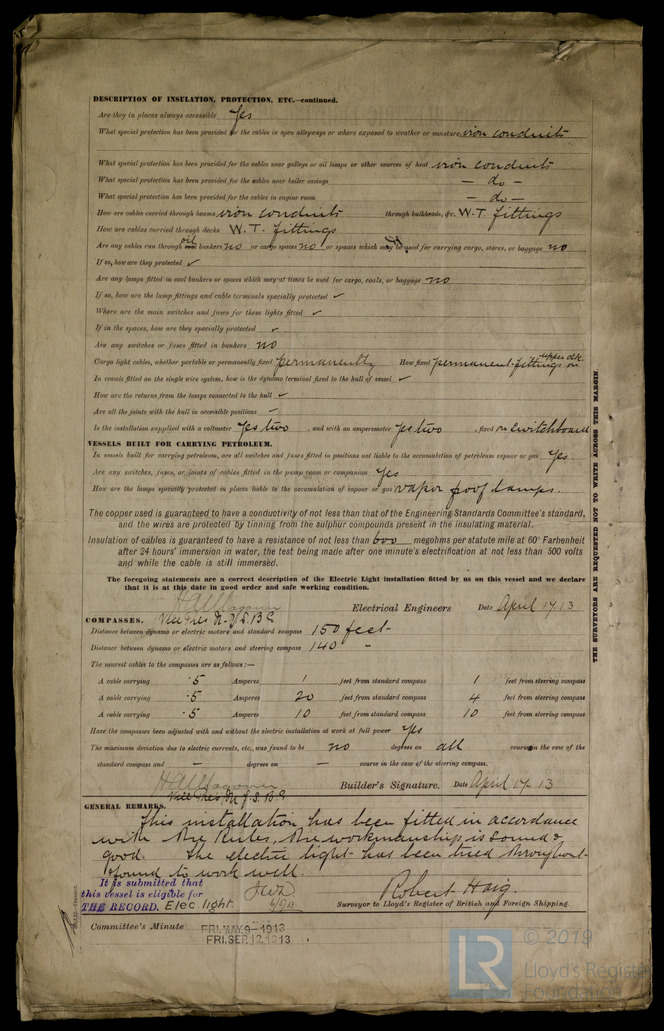 DESCRIPTION OF INSULATION, PROTECTION, ETC.—continued.
Are they in places always accessible Yes
What special protection has been provided for the cables in open alleyways or where exposed to weather or moisture iron conduits
What special protection has been provided for the cables near galleys or oil lamps or other sources of heat iron conduits
What special protection has been provided for the cables near boiler casings — do —
What special protection has been provided for the cables in engine room — do —
How are cables carried through beams iron conduits through bulkheads, &c. W.T. fittings
How are cables carried through decks W.T. fittings
Are any cables run through oil bunkers no or cargo spaces no or spaces which may be used for carrying cargo, stores, or baggage no
If so, how are they protected ✓
Are any lamps fitted in coal bunkers or spaces which may at times be used for cargo, coals, or baggage no
If so, how are the lamp fittings and cable terminals specially protected ✓
Where are the main switches and fuses for these lights fitted ✓
If in the spaces, how are they specially protected ✓
Are any switches or fuses fitted in bunkers no
Cargo light cables, whether portable or permanently fixed permanently How fixed permanent fittings on upper dk.
In vessels fitted on the single wire system, how is the dynamo terminal fixed to the hull of vessel ✓
How are the returns from the lamps connected to the hull ✓
Are all the joints with the hull in accessible positions —
Is the installation supplied with a voltmeter Yes two , and with an amperemeter Yes two , fixed on switchboard
VESSELS BUILT FOR CARRYING PETROLEUM.
In vessels built for carrying petroleum, are all switches and fuses fitted in positions not liable to the accumulation of petroleum vapour or gas Yes
Are any switches, fuses, or joints of cables fitted in the pump room or companion Yes
How are the lamps specially protected in places liable to the accumulation of vapour or gas vapor proof lamps.
The copper used is guaranteed to have a conductivity of not less than that of the Engineering Standards Committee's standard,
and the wires are protected by tinning from the sulphur compounds present in the insulating material.
Insulation of cables is guaranteed to have a resistance of not less than 600 megohms per statute mile at 60° Farhenheit
after 24 hours' immersion in water, the test being made after one minute's electrification at not less than 500 volts
and while the cable is still immersed.
The foregoing statements are a correct description of the Electric Light installation fitted by us on this vessel and we declare
that it is at this date in good order and safe working condition.
Electrical Engineers Date April 17. 13
COMPASSES.
Distance between dynamo or electric motors and standard compass 150 feet
Distance between dynamo or electric motors and steering compass 140 "
The nearest cables to the compasses are as follows:—
A cable carrying .5 Amperes 1 feet from standard compass 1 feet from steering compass
A cable carrying .5 Amperes 20 feet from standard compass 4 feet from steering compass
A cable carrying .5 Amperes 10 feet from standard compass 10 feet from steering compass
Have the compasses been adjusted with and without the electric installation at work at full power Yes
The maximum deviation due to electric currents, etc., was found to be no degrees on all courses in the case of the
standard compass and — degrees on — course in the case of the steering compass.
Builder's Signature. Date April 17. 13
GENERAL REMARKS.
This installation has been fitted in accordance
with the Rules, the workmanship is sound &
good. The electric light has been tried throughout
& found to work well.
It is submitted that
this vessel is eligible for
THE RECORD. Elec light.
Robert Haig.
Surveyor to Lloyd's Register of British and Foreign Shipping.
Committee's Minute FRI. MAY. 9 - 1913
FRI. SEP. 12. 1913
THE SURVEYORS ARE REQUESTED NOT TO WRITE ACROSS THIS MARGIN
LR
© 2019
Lloyd's Register
Foundation